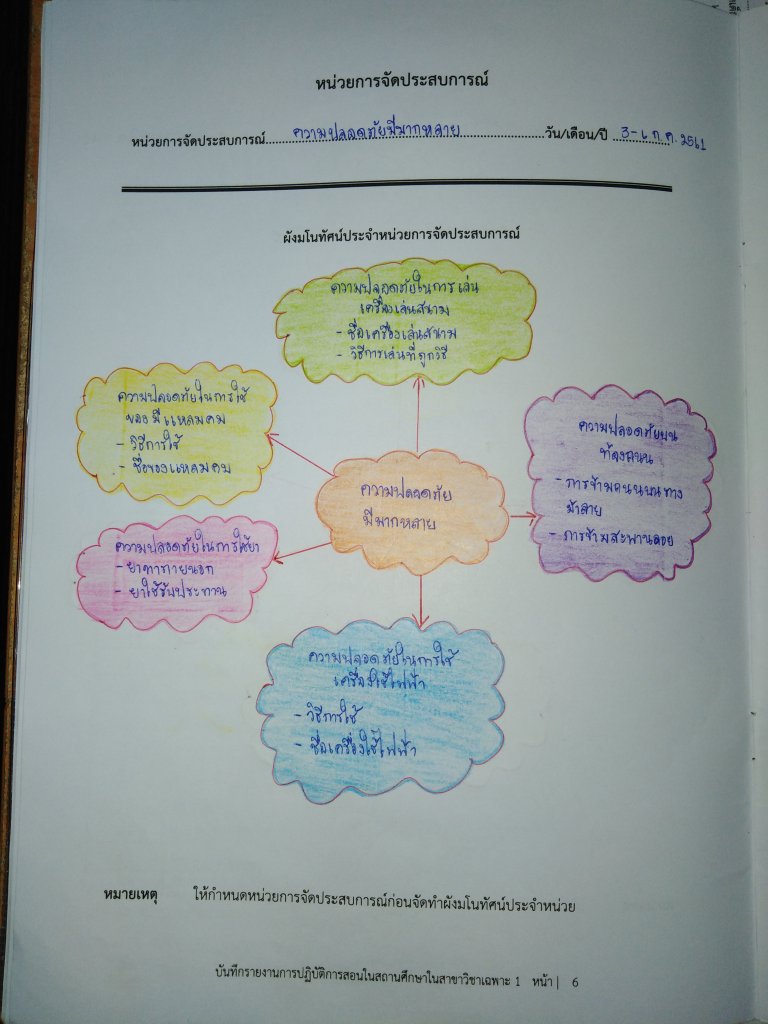 หน่วยการจัดประสบการณ์
หน่วยการจัดประสบการณ์ ความปลอดภัยมีมากหลาย วัน/เดือน/ปี 3-6 ก.ค. 2561
ผังมโนทัศน์ประจำหน่วยการจัดประสบการณ์
ความปลอดภัยในการเล่น
เครื่องเล่นสนาม
- ชื่อเครื่องเล่นสนาม
- วิธีการเล่นที่ถูกวิธี
ความปลอดภัยในการใช้
ของมีแหลมคม
- วิธีการใช้
- ชื่อของแหลมคม
ความปลอดภัยบน
ท้องถนน
- การข้ามถนนบนทาง
ม้าลาย
- การข้ามสะพานลอย
ความปลอดภัย
มีมากหลาย
ความปลอดภัยในการใช้ยา
- ยาทาภายนอก
- ยาใช้รับประทาน
ความปลอดภัยในการใช้
เครื่องใช้ไฟฟ้า
- วิธีการใช้
- ชื่อเครื่องใช้ไฟฟ้า
หมายเหตุ ให้กำหนดหน่วยการจัดประสบการณ์ก่อนจัดทำผังมโนทัศน์ประจำหน่วย
บันทึกรายงานการปฏิบัติการสอนในสถานศึกษาในสาขาวิชาเฉพาะ 1 หน้า | 6